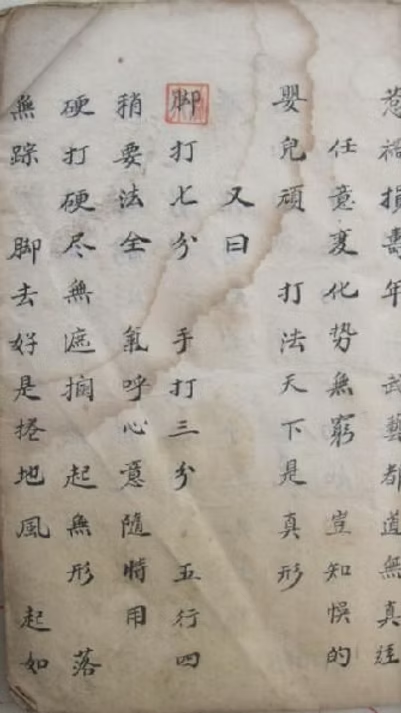 惹禍損壽年 武藝都道無真
任意变化势無窮 豈知悮的
嬰兒頑 打法天下是真形
又曰
脚打七分 手打三分 五行四
稍要法全 氣呼心意隨時用
硬打硬尽無遮搁 起無形 落
無踪 脚去好是捲地風 起如